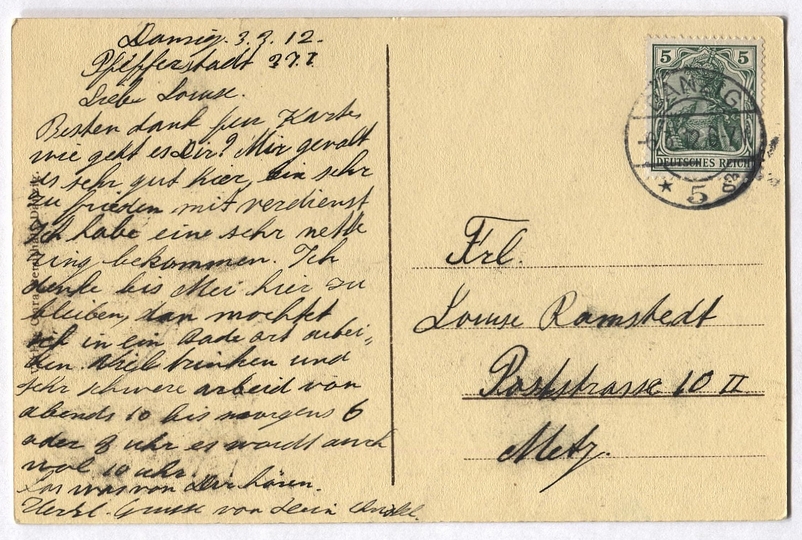 Danzig. 3.3.12.
Pfefferstadt
Liebe Louise.
Besten dank für Karte
wie geht es Dir? Mir gevalt
es sehr gut hier, bin sehr
zu frieden mit verdienst
Ich habe eine sehr nette
bekommen. Ich
denke bis Mei hier zu
bleiben, dan mochte
ich in ein Bade ort arbei-
den. Viel trinken und
sehr schwere arbeid von
abends 10 bis morgens 6
oder 8 uhr es wordt auch
wol 10 uhr.
Las was von Dir hören.
Herzl. Grusse von Dein
5 5
DEUTSCHES REICH
DANZIG
* 5
Frl.
Louise Ramstedt
Poststrasse 10 II
Metz.